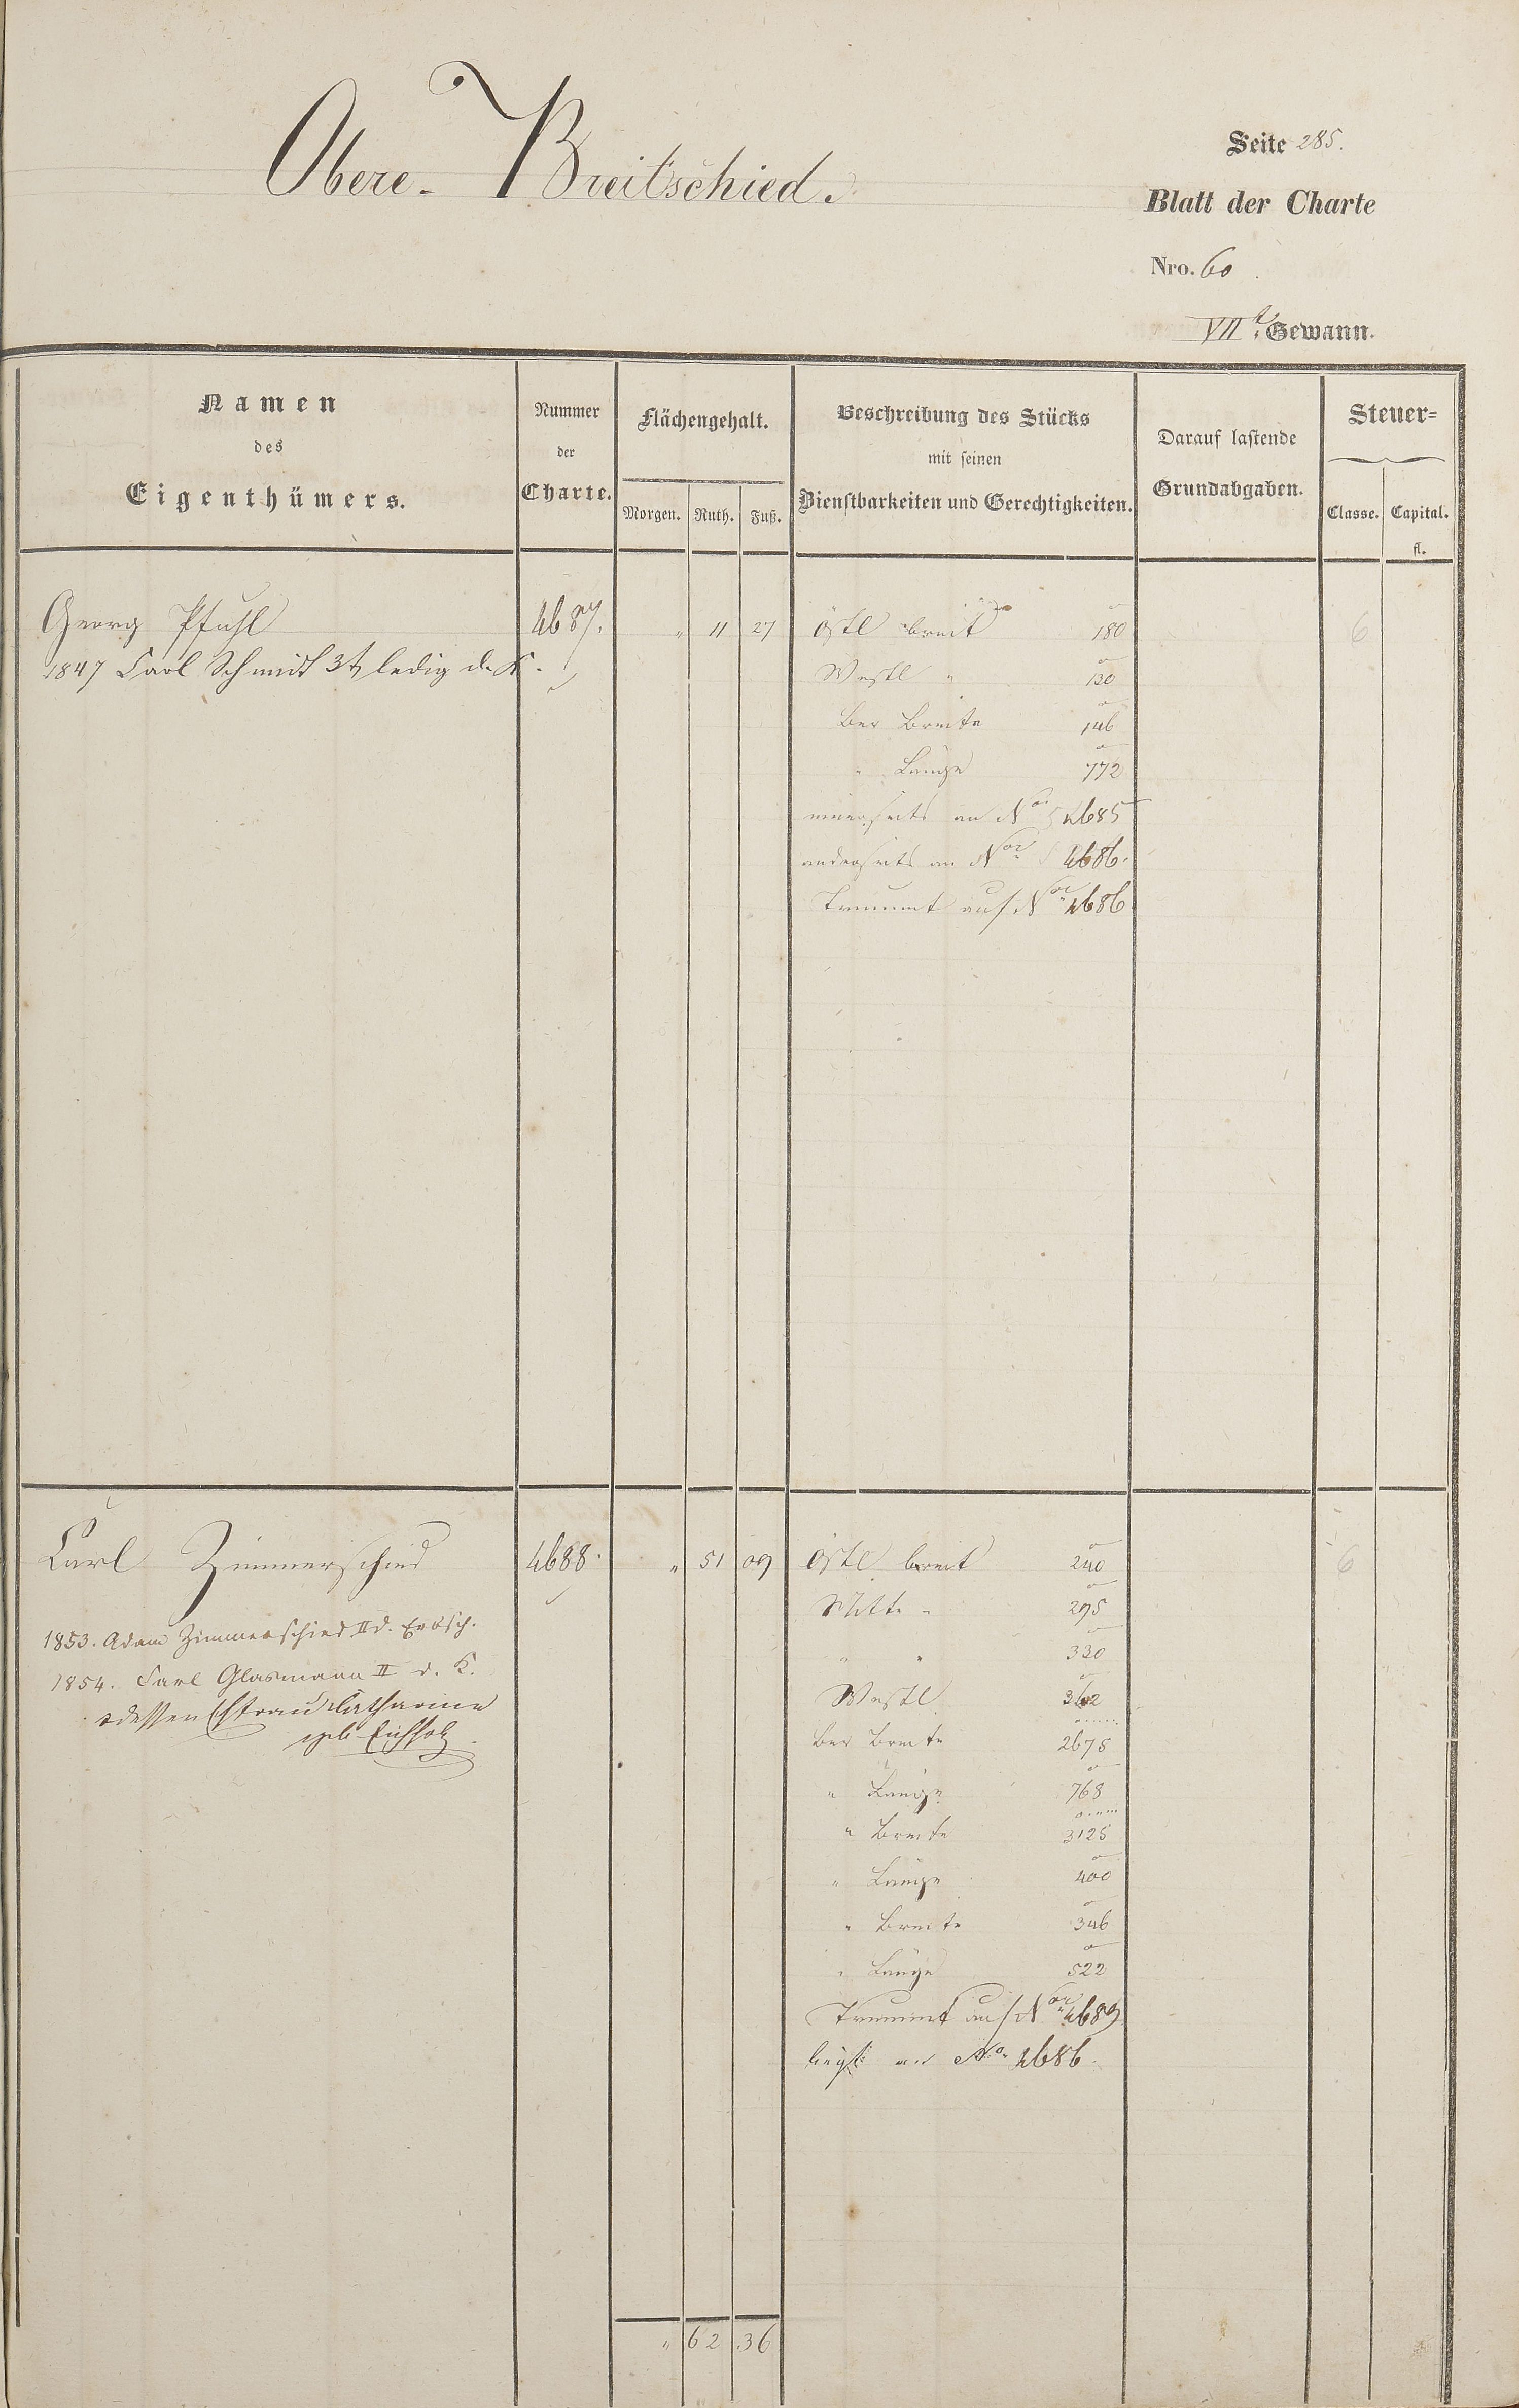 Obere-Breitschied.
Seite 285.
Blatt der Charte
Nro. 60
VII.te Gewann.
Namen
des
Eigenthümers.
Nummer
der
Charte.
Flächengehalt.
Morgen. Ruth. Fuß.
Beschreibung des Stücks
mit seinen
Dienstbarkeiten und Gerechtigkeiten.
Darauf lastende
Grundabgaben.
Steuer-
Classe. Capital.
fl.
Georg Pfuhl 4687. " 11 27 östl breit 180 6
1847 Carl Schmidt 3t ledig d. K.
Westl " 130
Ber Breite 146
" Länge 772
einerseits an No 4685
anderseits an Nor 4686.
Trummt auf Nor 4686
Carl Zimmerschied 4688. " 51 09 östl breit 240 6
Mitte " 295
1853. Adam Zimmerschied II d. Erbsch.
" " 330
1854. Carl Glasmann II d. K.
Westl 362
dessen Ehefrau Catharine
geb Eichholz
Ber Breite 2675
" Länge 768
" Breite 3125
" Länge 400
" Breite 346
" Länge 522
Trummt auf Nor 4689
liegt an No 4686.
" 62 36